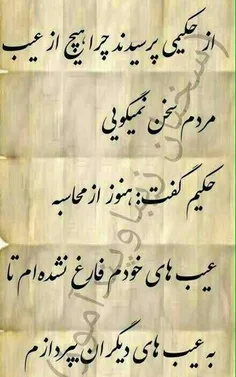 از حکیمی پرسیدند چرا هیچ از عیب
مردم سخن نمیگویی
حکیم گفت: هنوز از محاسبه
عیب های خودم فارغ نشده ام تا
به عیب های دیگران بپردازم